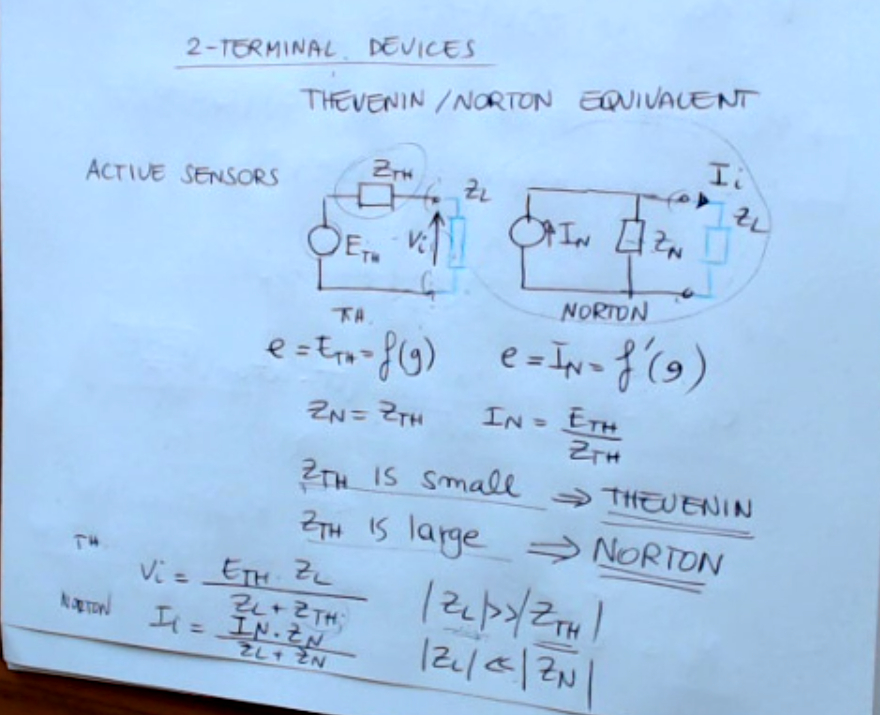 2-TERMINAL DEVICES
THEVENIN / NORTON EQUIVALENT
ACTIVE SENSORS
Z_TH Z_L
E_TH V_i
TH.
I_i
I_N Z_N Z_L
NORTON
e = E_TH = f(g) e = I_N = f'(g)
Z_N = Z_TH I_N = E_TH / Z_TH
Z_TH IS small ⇒ THEVENIN
Z_TH IS large ⇒ NORTON
TH. V_i = E_TH · Z_L / Z_L + Z_TH |Z_L| >> |Z_TH|
NORTON I_i = I_N · Z_N / Z_L + Z_N |Z_L| << |Z_N|